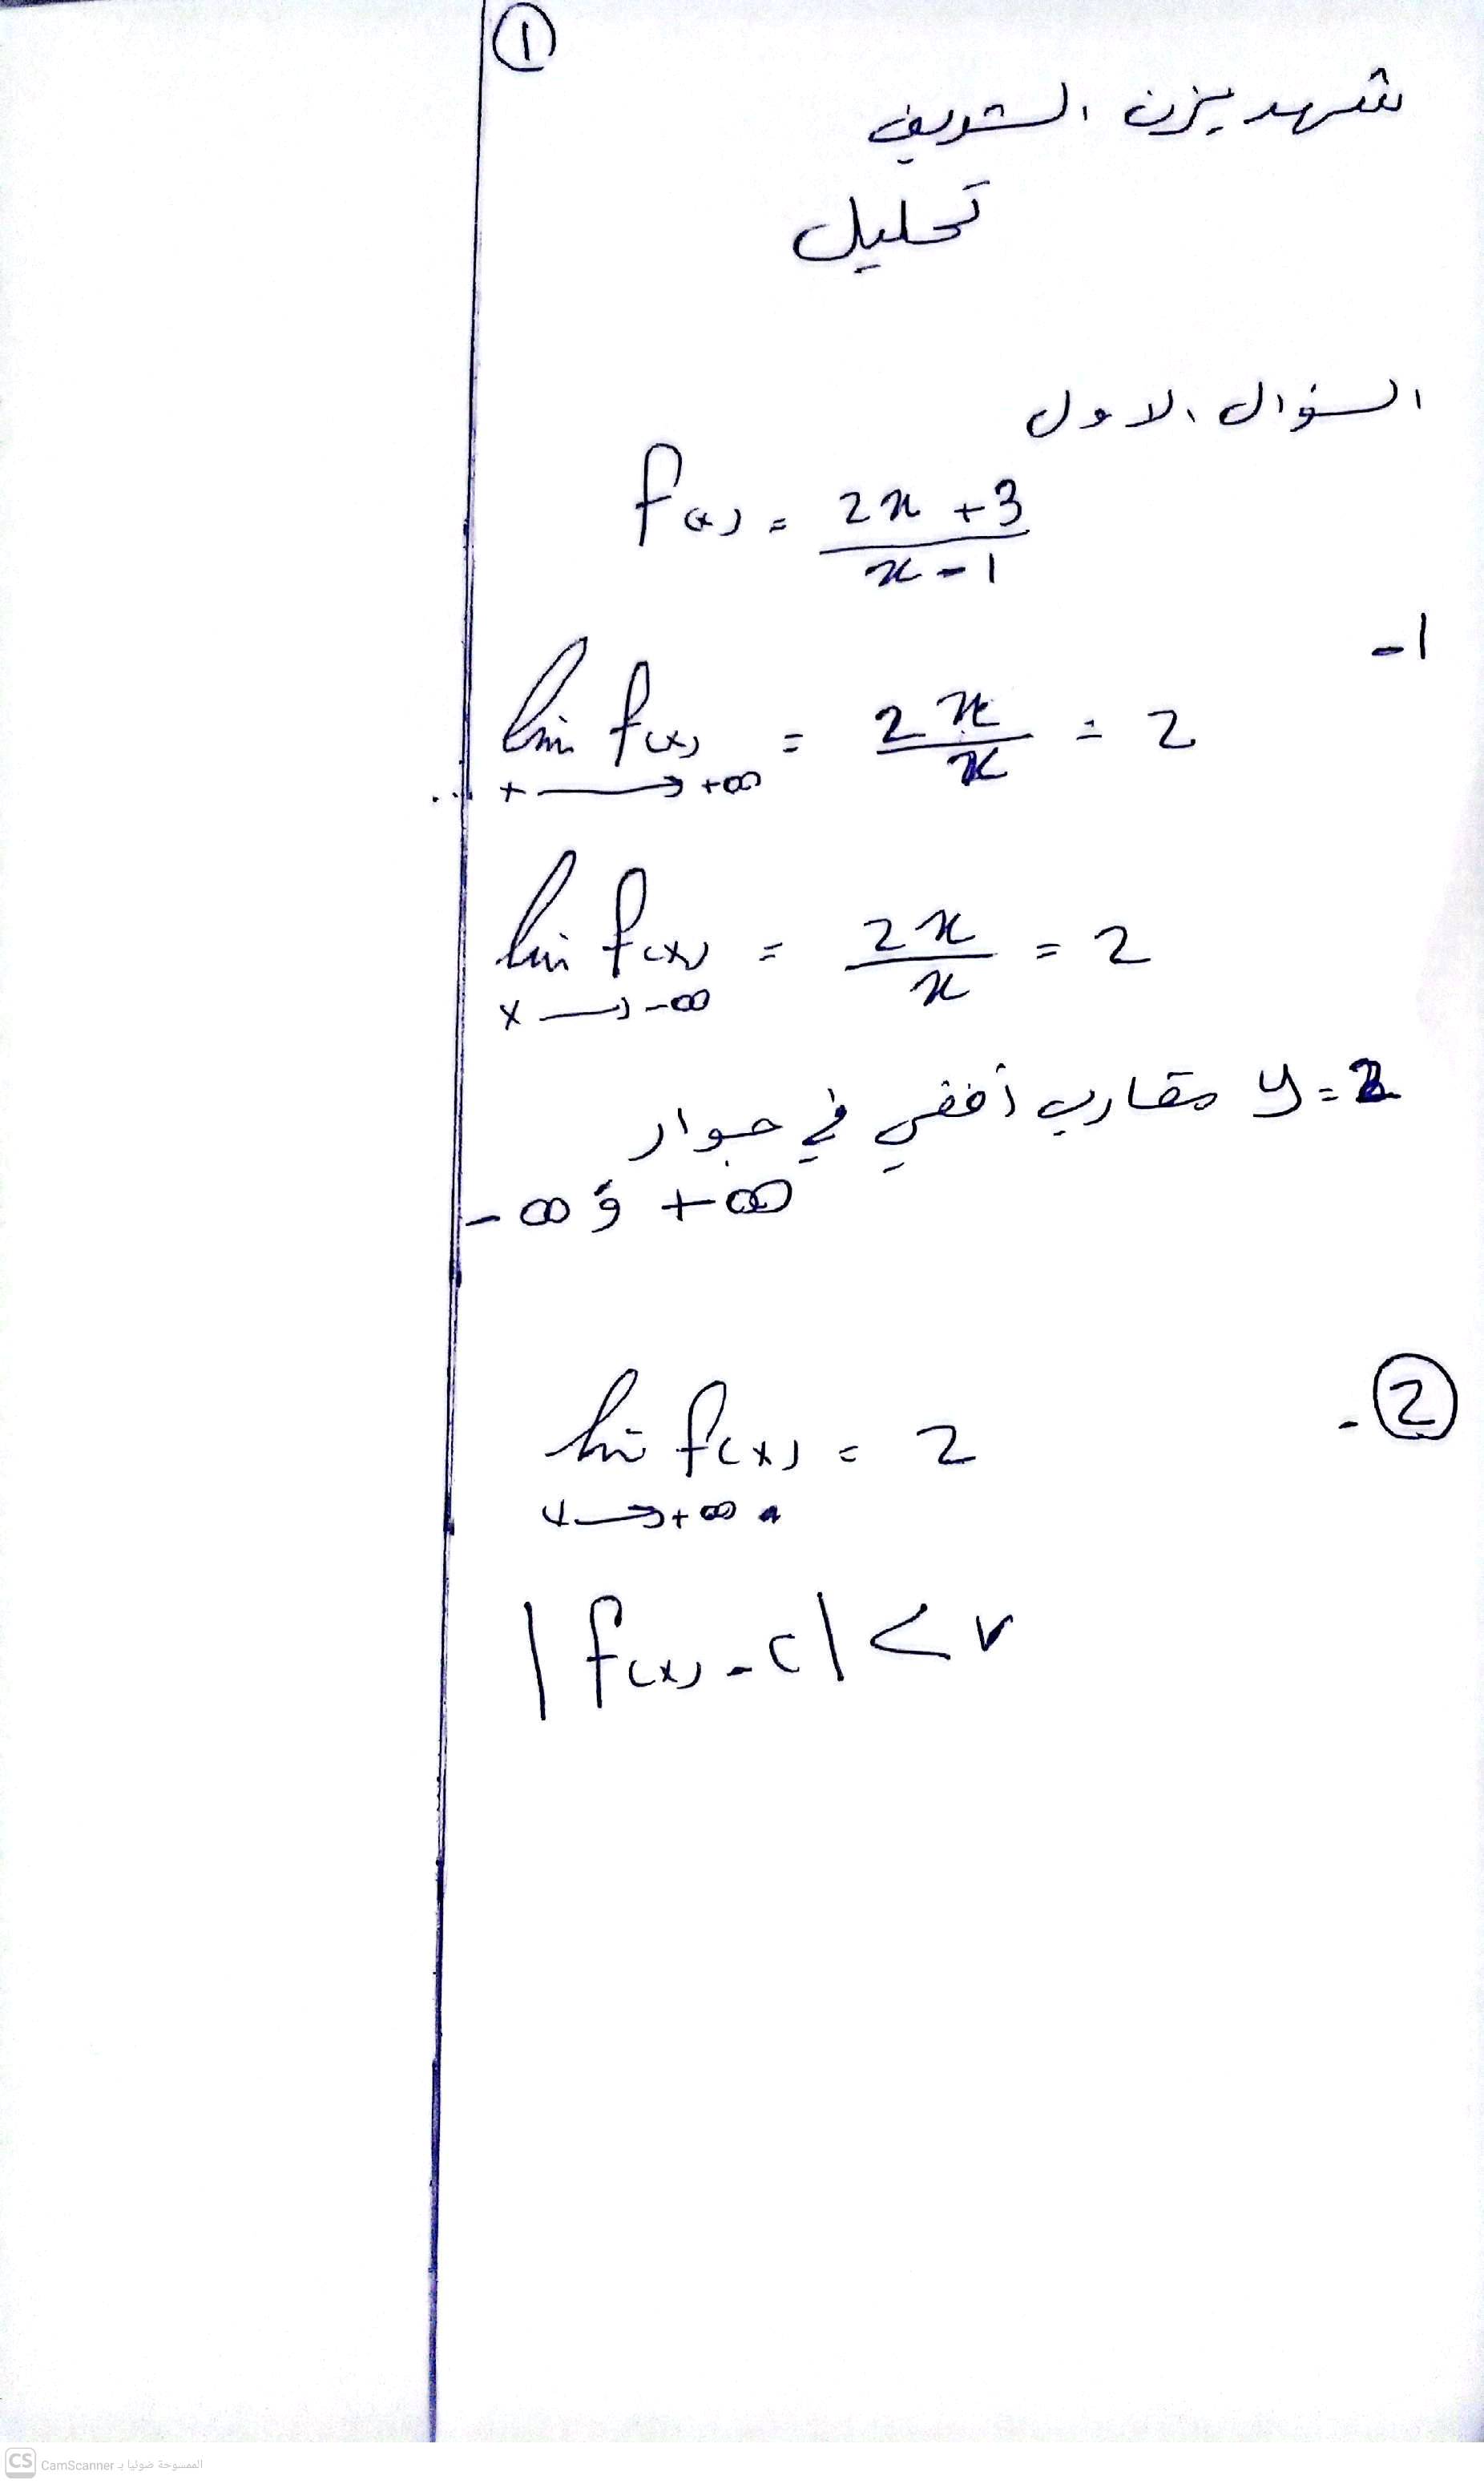 ①
شهد يزن الشريف
تحليل
السؤال الاول
f(x) = (2x + 3) / (x - 1)
-1
lim f(x) = 2x / x = 2
x → +∞
lim f(x) = 2x / x = 2
x → -∞
y = 2 مقارب أفقي في جوار
+∞ و -∞
② -
lim f(x) = 2
x → +∞
| f(x) - c | < r
CS CamScanner الممسوحة ضوئيا بـ